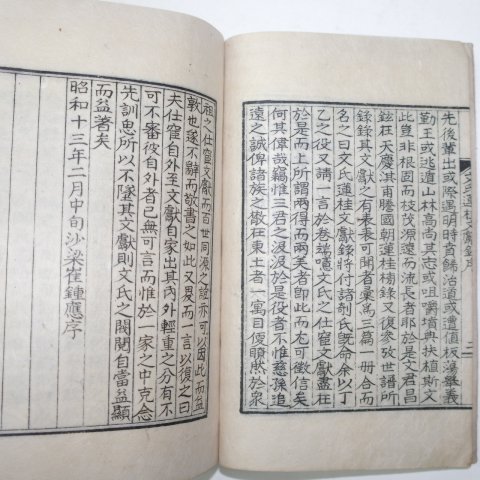 先後輩出或際遇明時賁歸治道或遭値板蕩擧義
勤王或逃遁山林高尚其志或咀嚼墳典扶植斯文
此豈非根固而枝茂源遠而流長者耶於是文君昌
鉉柱天慶淇甫騰國朝蓮桂楊錄又復參攷世譜所
錄錄其文獻之有表表可聞者彙爲三篇一册合而
名之曰文氏蓮桂文獻錄將付諸剞氏旣命余以丁
乙之役又請一言於卷端噫文氏之仕宦文獻盡在
於是而上所謂兼而有之兩美者卽此而尤可徵信矣
何其偉哉竊惟三君之汲汲於是役者不惟慈孫追
遠之誠俾諸族之散在東土者一寓目便瞭然於泉
文氏蓮桂文獻錄序
二
祖之仕宦文獻而百世同源之誼亦可以因此而益
敦也遂不辭而敬書之如此又畏而一言以復之曰
夫仕宦自外至文獻自家出其內外輕重之分有不
可不審彼自外者已無可言而惟於一家之中克念
先訓思所以不墜其文獻則文氏之閥閱自當益顯
而益著矣
昭和十三年二月中旬沙梁崔鍾應序